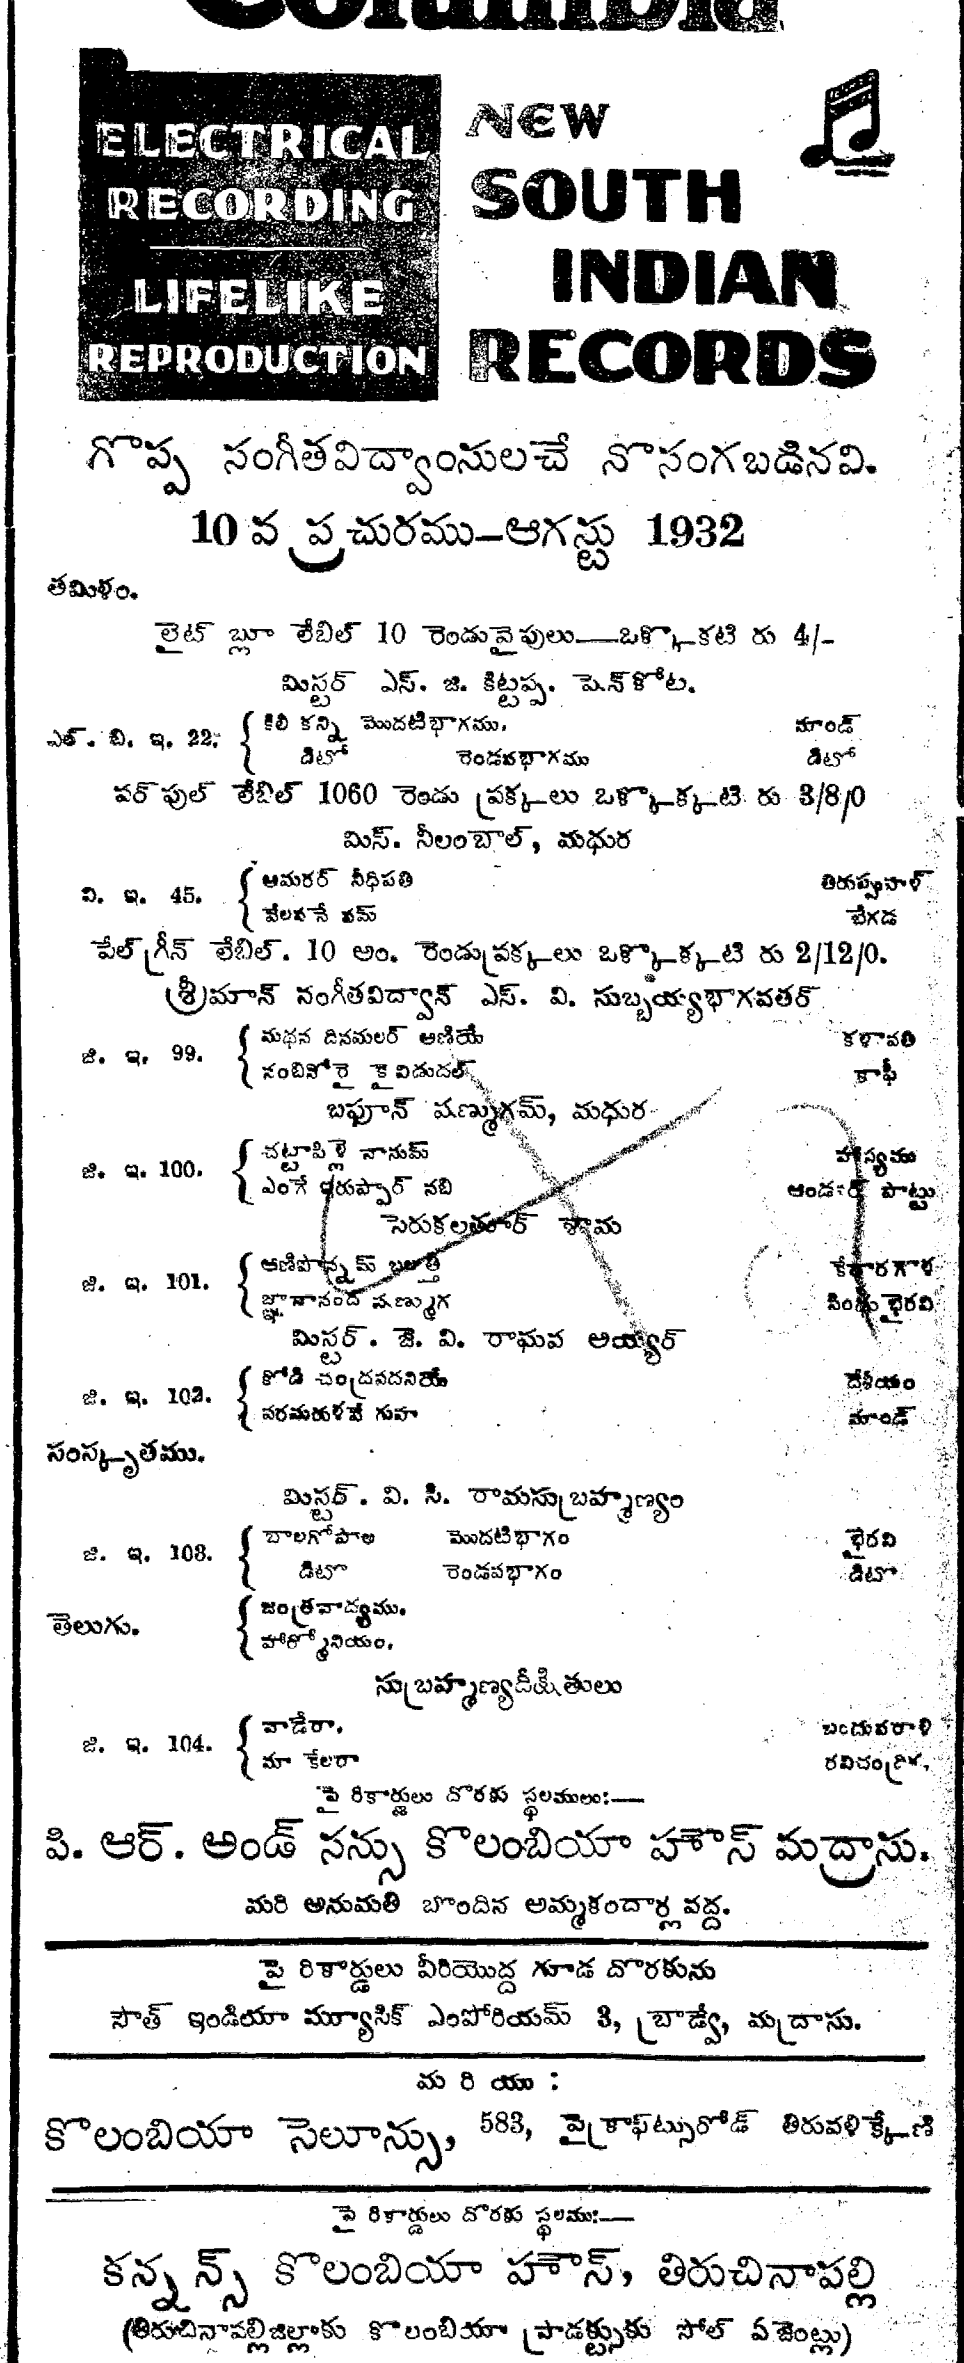 Columbia
ELECTRICAL
RECORDING
LIFELIKE
REPRODUCTION
NEW
SOUTH
INDIAN
RECORDS
గొప్ప సంగీతవిద్వాంసులచే నొసంగబడినవి.
10 వ ప్రచురము—ఆగస్టు 1932
తమిళం.
లైట్ బ్లూ లేబిల్ 10 రెండువైపులు—ఒళ్కొకటి రు 4/-
మిస్టర్ ఎస్. జి. కిట్టప్ప. షెన్‌కోట.
ఎల్. బి. ఇ. 22. కిలీ కన్ని మొదటిభాగము. మాండ్
డిటో రెండవభాగము డిటో
పర్పుల్ లేబిల్ 1060 రెండు ప్రక్కలు ఒళ్కొక్కటి రు 3/8/0
మిస్. నీలంబాల్, మధుర
వి. ఇ. 45. ఆమరర్ నీధిపతి
వేలవనే బేగడ
పేల్ గ్రీన్ లేబిల్. 10 అం. రెండుప్రక్కలు ఒళ్కొక్కటి రు 2/12/0.
శ్రీమాన్ సంగీతవిద్వాన్ ఎస్. వి. సుబ్బయ్యభాగవతర్
జి. ఇ. 99. మథన దినమలర్ అణియే కళావతి
నంబినోరై కైవిడుదల్ కాఫీ
బఫూన్ షణ్ముగమ్, మధుర
జి. ఇ. 100. చట్టాపిళ్లై నానుమ్ హాస్యము
ఎంగే ఇరుప్పార్ నబి పాట్టు
సెరుకలతూర్ శామ
జి. ఇ. 101. ఆణిపొన్నమ్ కేదారగౌళ
జ్ఞానానంద షణ్ముగ సింధుభైరవి
మిస్టర్. జె. వి. రాఘవ అయ్యర్
జి. ఇ. 102. కోడి చంద్రవదనియే దేశీయం
పరమగురవే గుహ మాండ్
సంస్కృతము.
మిస్టర్. వి. సి. రామసుబ్రహ్మణ్యం
జి. ఇ. 103. బాలగోపాల మొదటిభాగం భైరవి
డిటో రెండవభాగం డిటో
తెలుగు. జంత్రవాద్యము.
హార్మోనియం.
సుబ్రహ్మణ్యదీక్షితులు
జి. ఇ. 104. వాడేరా. బందువరాళి
మా కేలరా రవిచంద్రిక.
పై రికార్డులు దొరకు స్థలములు:—
పి. ఆర్. అండ్ సన్సు కొలంబియా హౌస్ మద్రాసు.
మరి అనుమతి బొందిన అమ్మకందార్ల వద్ద.
పై రికార్డులు వీరియొద్ద గూడ దొరకును
సౌత్ ఇండియా మ్యూసిక్ ఎంపోరియమ్ 3, బ్రాడ్వే, మద్రాసు.
మ రి యు :
కొలంబియా సెలూన్సు, 583, పైక్రాఫ్ట్సురోడ్ తిరువళిక్కేణి
పై రికార్డులు దొరకు స్థలము:—
కన్నన్స్ కొలంబియా హౌస్, తిరుచినాపల్లి
(తిరుచినాపల్లిజిల్లాకు కొలంబియా ప్రాడక్ట్సుకు సోల్ ఏజెంట్లు)